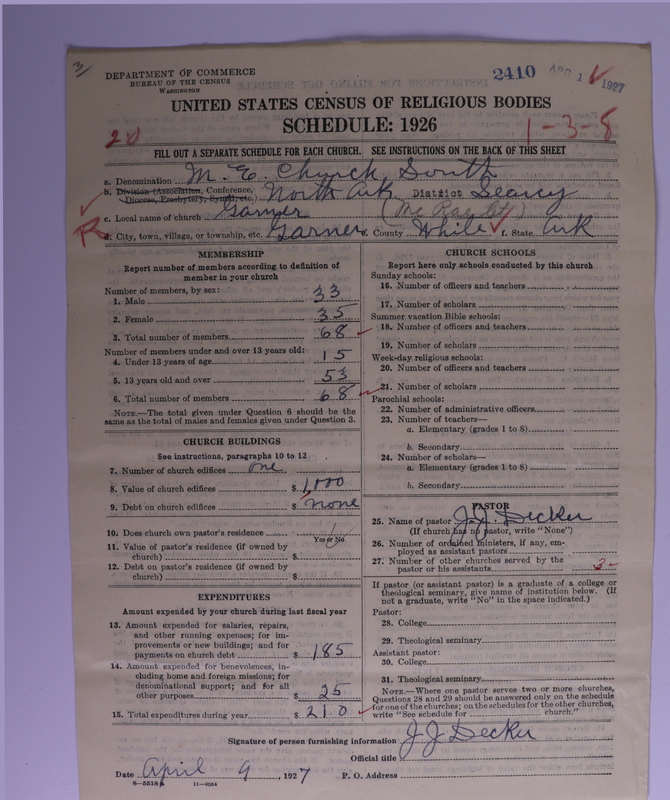 3
DEPARTMENT OF COMMERCE
BUREAU OF THE CENSUS
WASHINGTON
2410 APR 1 1927
UNITED STATES CENSUS OF RELIGIOUS BODIES
SCHEDULE: 1926
20
1-3-8
FILL OUT A SEPARATE SCHEDULE FOR EACH CHURCH. SEE INSTRUCTIONS ON THE BACK OF THIS SHEET
a. Denomination M. E. Church South
b. Division (Association, Conference, Diocese, Presbytery, Synod, etc.) North Ark District Searcy
c. Local name of church Garner (Mc Rae
R
d. City, town, village, or township, etc. Garner e. County White f. State Ark
MEMBERSHIP
Report number of members according to definition of member in your church
Number of members, by sex:
1. Male 33
2. Female 35
3. Total number of members 68
Number of members under and over 13 years old:
4. Under 13 years of age 15
5. 13 years old and over 53
6. Total number of members 68
NOTE.—The total given under Question 6 should be the same as the total of males and females given under Question 3.
CHURCH BUILDINGS
See instructions, paragraphs 10 to 12
7. Number of church edifices one
8. Value of church edifices $ 1,000
9. Debt on church edifices $ none
10. Does church own pastor's residence Yes or No
11. Value of pastor's residence (if owned by church) $
12. Debt on pastor's residence (if owned by church) $
EXPENDITURES
Amount expended by your church during last fiscal year
13. Amount expended for salaries, repairs, and other running expenses; for improvements or new buildings; and for payments on church debt $ 185
14. Amount expended for benevolences, including home and foreign missions; for denominational support; and for all other purposes $ 25
15. Total expenditures during year $ 210
CHURCH SCHOOLS
Report here only schools conducted by this church
Sunday schools:
16. Number of officers and teachers
17. Number of scholars
Summer vacation Bible schools:
18. Number of officers and teachers
19. Number of scholars
Week-day religious schools:
20. Number of officers and teachers
21. Number of scholars
Parochial schools:
22. Number of administrative officers
23. Number of teachers—
a. Elementary (grades 1 to 8)
b. Secondary
24. Number of scholars—
a. Elementary (grades 1 to 8)
b. Secondary
PASTOR
25. Name of pastor J. J. Decker
(If church has no pastor, write "None")
26. Number of ordained ministers, if any, employed as assistant pastors
27. Number of other churches served by the pastor or his assistants
If pastor (or assistant pastor) is a graduate of a college or theological seminary, give name of institution below. (If not a graduate, write "No" in the space indicated.)
Pastor:
28. College
29. Theological seminary
Assistant pastor:
30. College
31. Theological seminary
NOTE.—Where one pastor serves two or more churches, Questions 28 and 29 should be answered only on the schedule for one of the churches; on the schedules for the other churches, write "See schedule for church."
Signature of person furnishing information J J Decker
Official title
Date April 9, 1927 P. O. Address
8-5518 11-9034